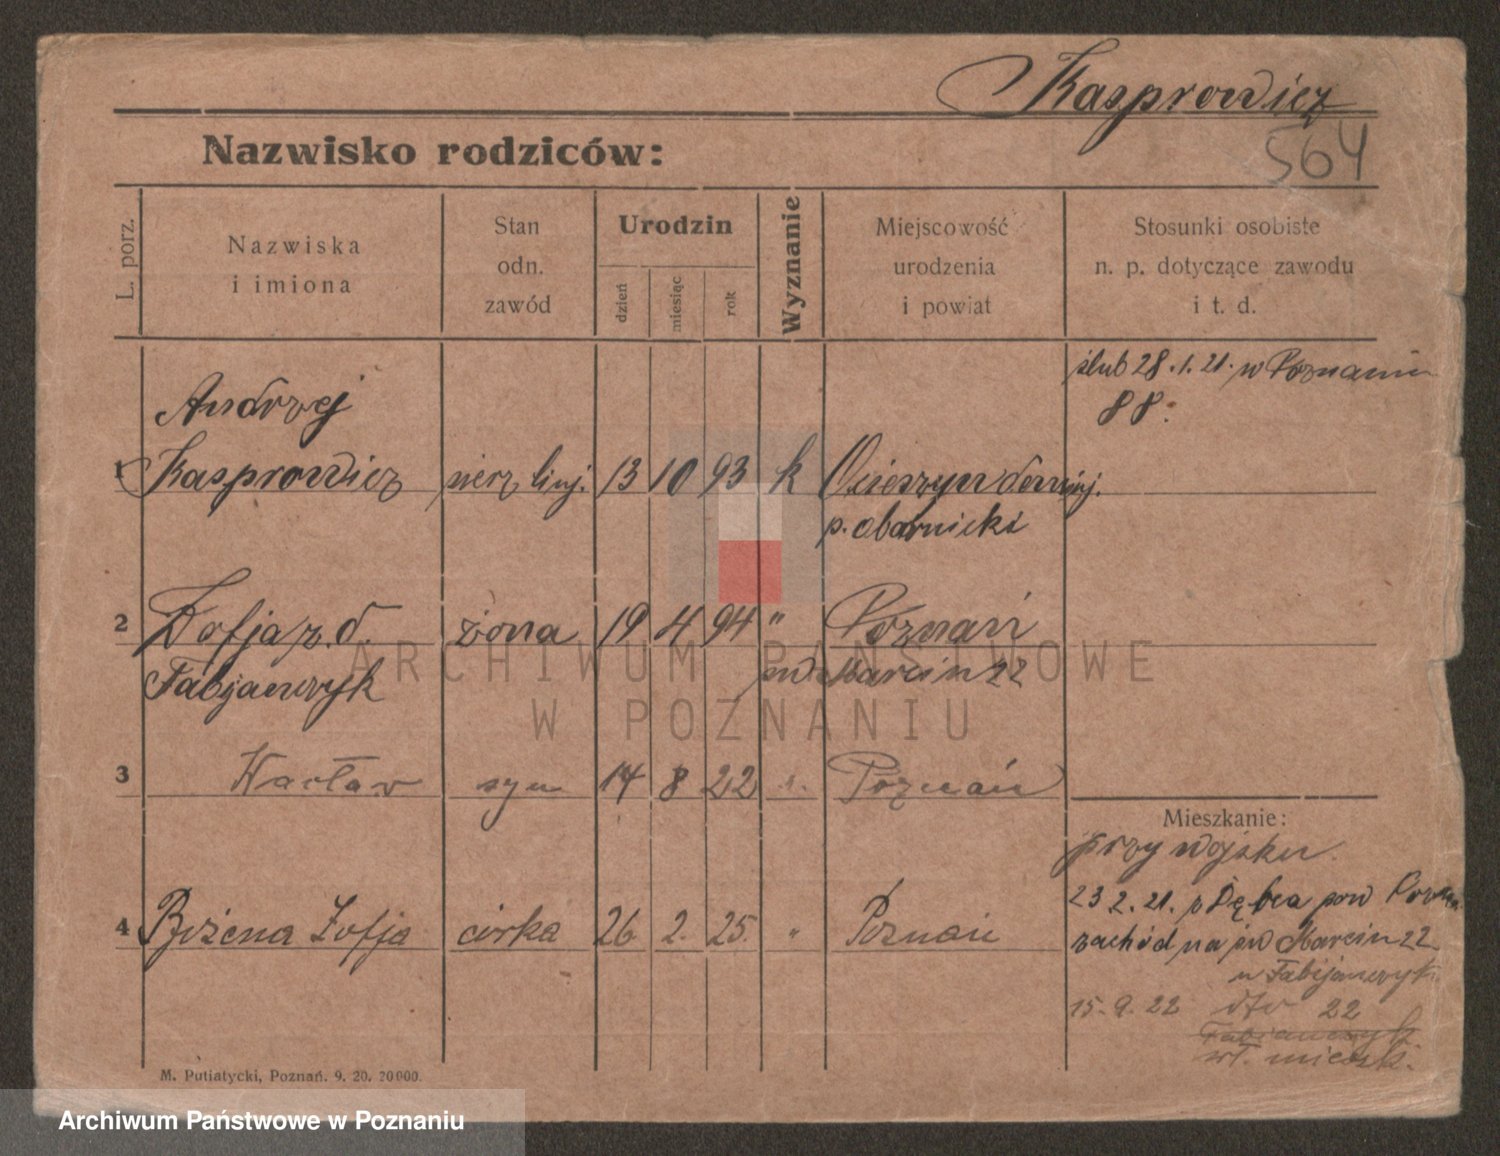 Kasprowicz
564
Nazwisko rodziców:
L. porz.
Nazwiska
i imiona
Stan
odn.
zawód
Urodzin
dzień
miesiąc
rok
Wyznanie
Miejscowość
urodzenia
i powiat
Stosunki osobiste
n. p. dotyczące zawodu
i t. d.
ślub 28.1.21. w Poznaniu
88.
Andrzej
1 Kasprowicz 13 10 93 k
p. obornicki
2 Zofja z. d. żona 19 4 94 " Poznań
Fabjanczyk św Marcin 22
3 Wacław syn 14 8 22 Poznań
Mieszkanie:
przy wojsku.
23.2.21. Dębca pow
4 Bożena Zofja córka 26 2. 25. " Poznań
zachód na św Marcin 22
u Fabijanczyk
15.9.22 dto 22
Fabianczyk
wł. mieszk.
M. Putiatycki, Poznań. 9. 20. 20000.
ARCHIWUM PAŃSTWOWE
W POZNANIU
Archiwum Państwowe w Poznaniu